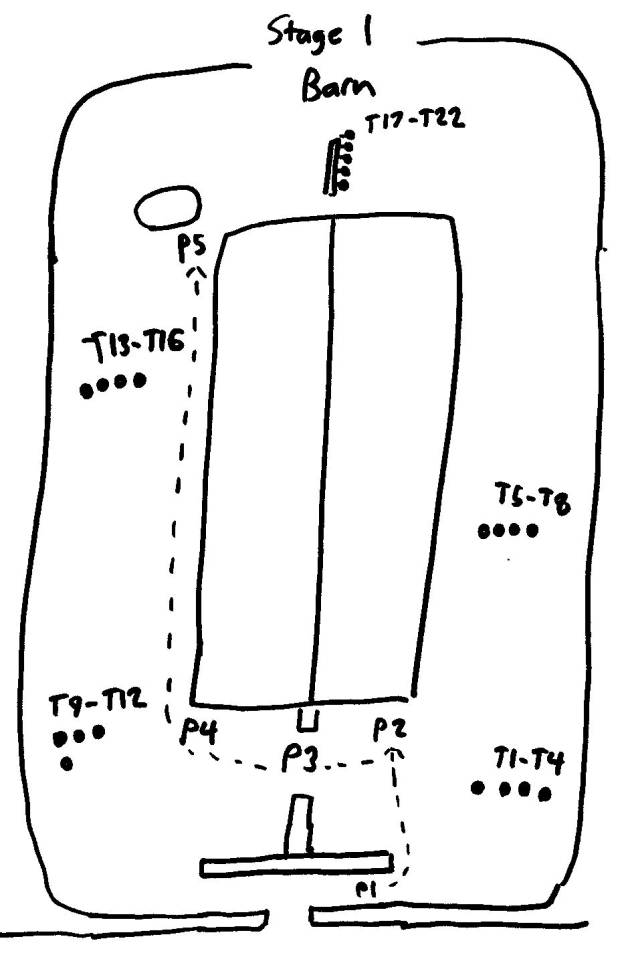 Stage 1
Barn
T17-T22
P5
T13-T16
T5-T8
T9-T12
P4
P3
P2
T1-T4
P1